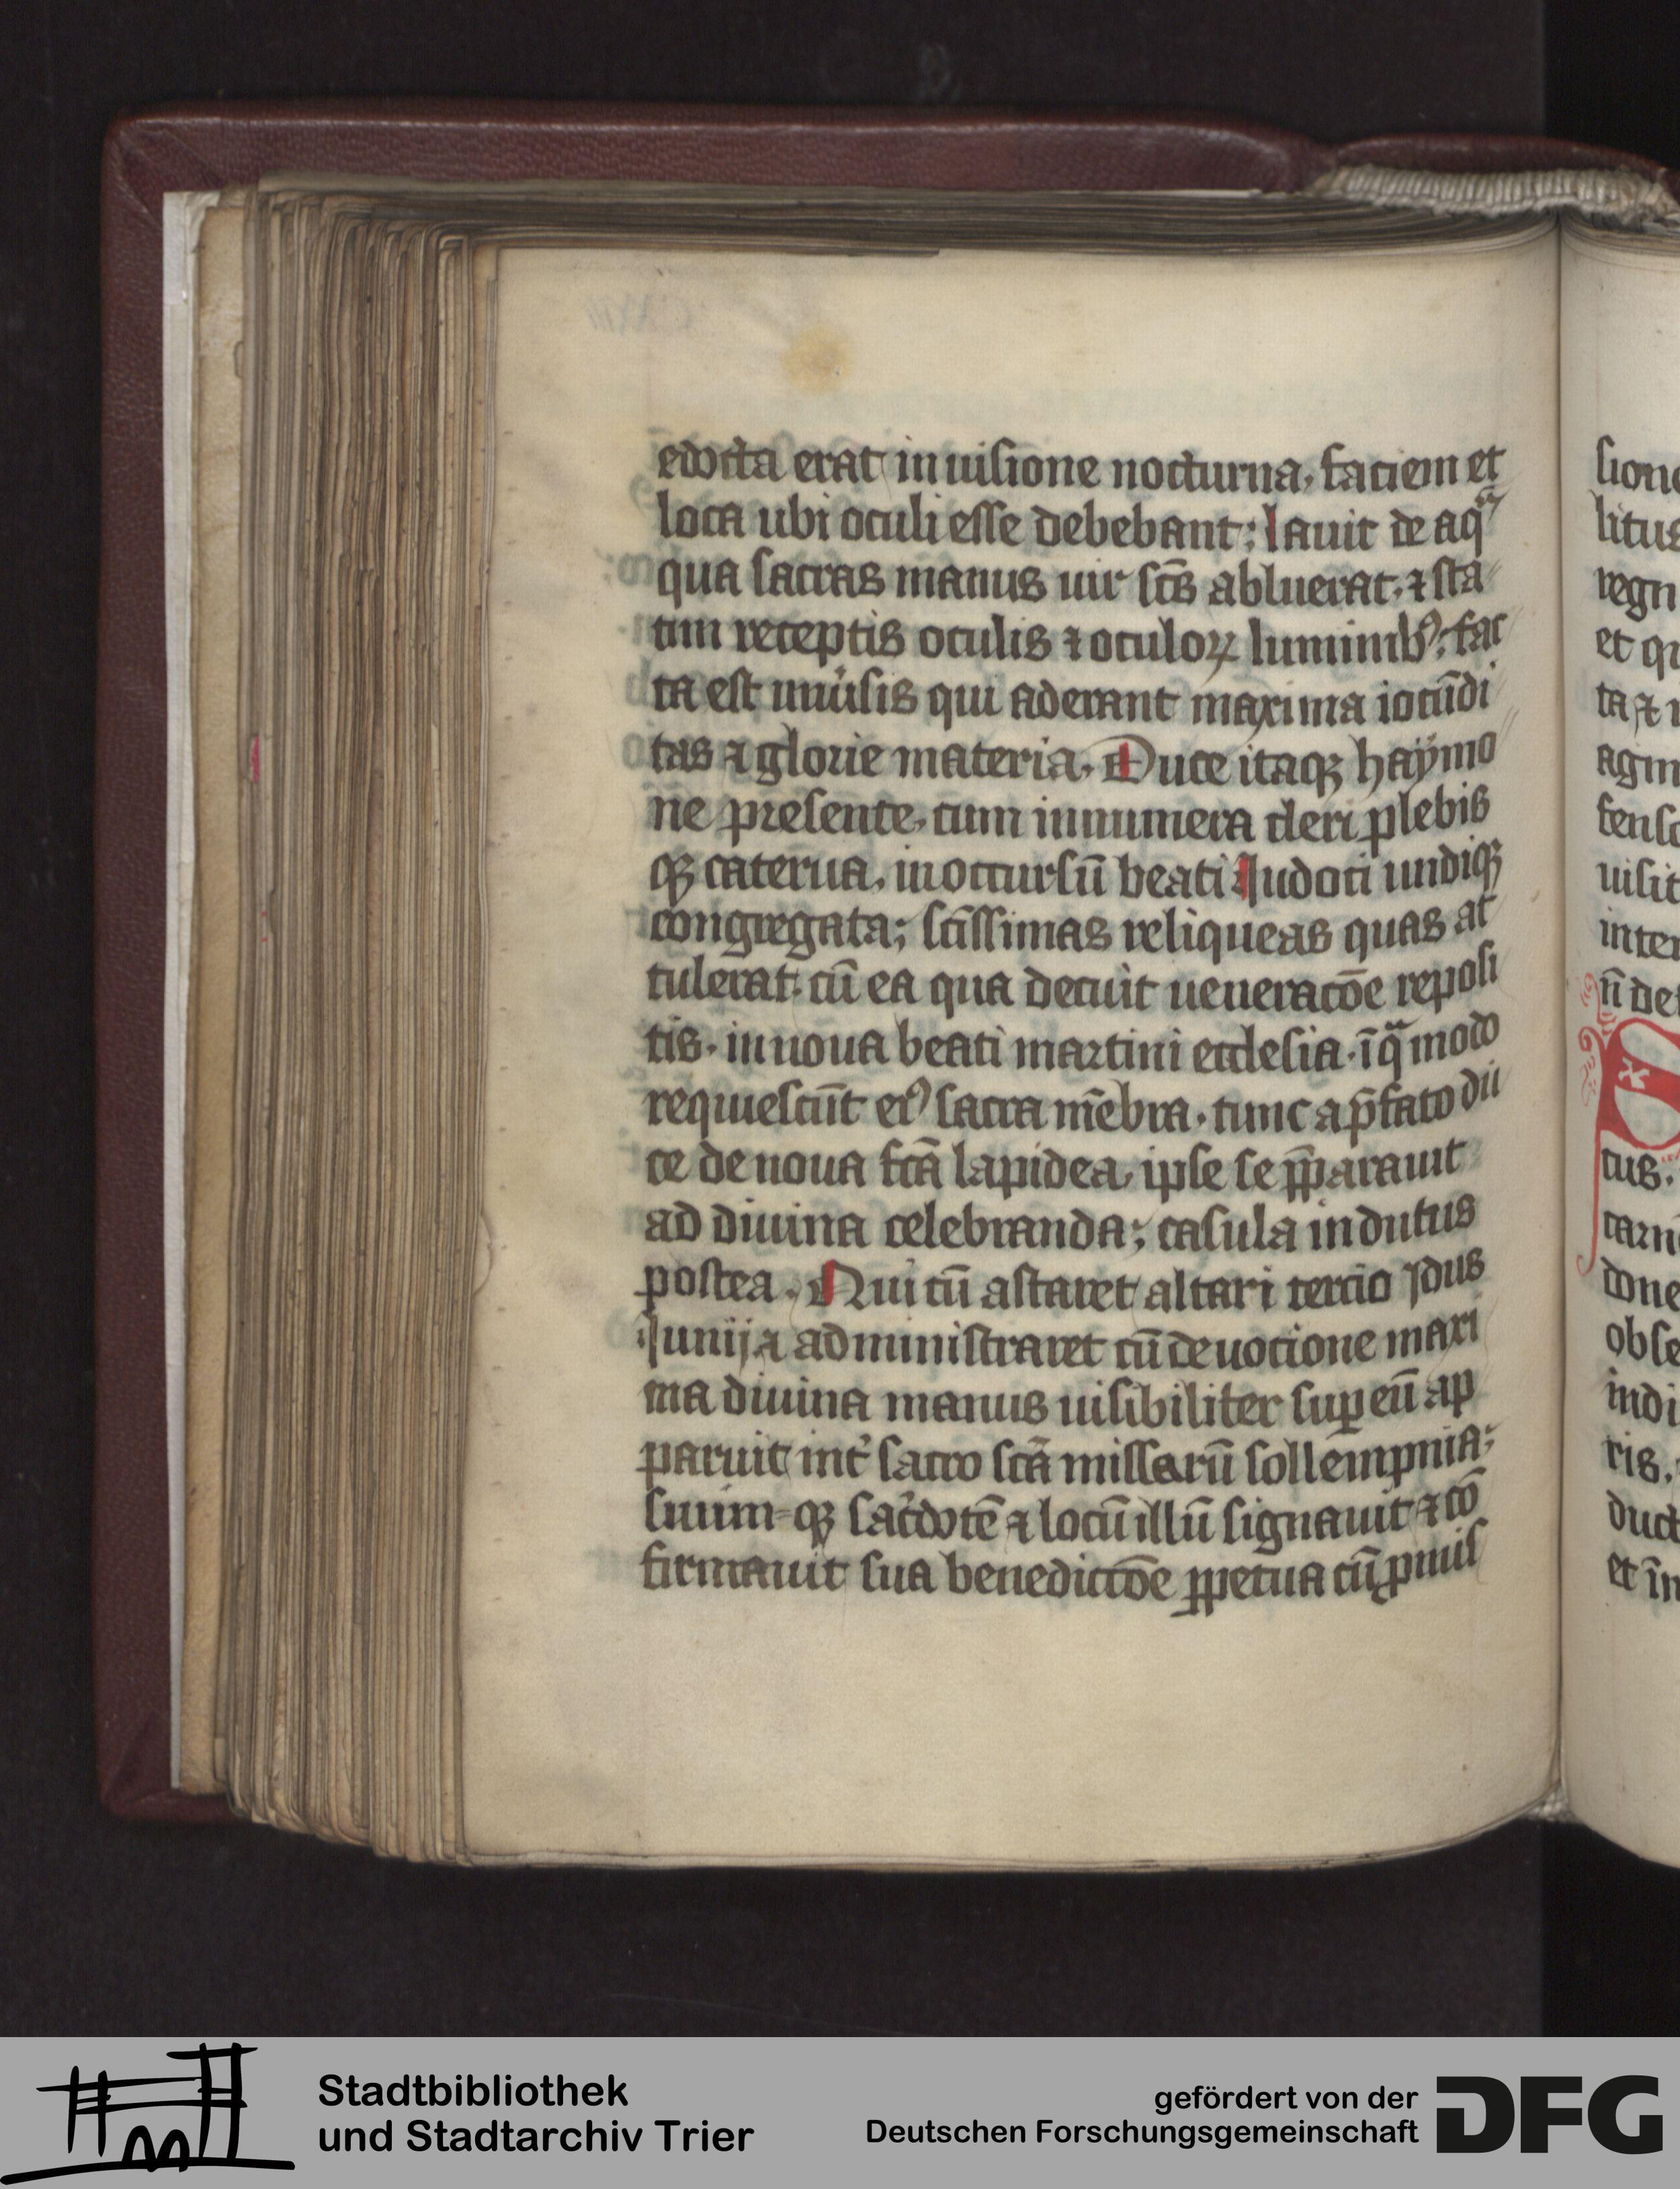 edocta erat in uisione nocturna, faciem et
loca ubi oculi esse debebant; lauit de aqᵃ
qua sacras manus uir sc̄s abluerat, ⁊ sta
tim receptis oculis ⁊ oculoꝝ luminibꝰ; fac
ta est uniůsis qui aderant maxima iocūdi
tas ⁊ glorie materia. Duce itaqꝫ haẏmo
ne presente, cum innumera cleri plebis
qꝫ caterua, in occursū beati Judoci undiqꝫ
congregata; sc̄issimas reliqueas quas at
tulerat; cū ea qua decuit ueneracōe reposi
tis, in noua beati martini ecclesia, ī qᵃ modo
requiescūt eiꝰ sacra mēbra, tunc a p̄fato du
ce de noua fc̄a lapidea, ipse se p̄parauit
ad diuina celebranda; casula indutus
postea. Qui cū astaret altari tercio Jdus
Junij ⁊ administraret cū deuocione maxi
ma diuina manus uisibiliter suꝑ eū ap
paruit int᷑ sacro sc̄a missarū sollempnia;
suum=qꝫ sac᷑dotē ⁊ locū illū signauit ⁊ cō
firmauit sua benedictōe ꝑpetua cū ꝓmis
sione
litus
regn
et qu
ta ⁊
agm
tenso
uisit
inter
n̄ de
S
tus.
carn
done
obse
indi
ris.
duct
et in
Stadtbibliothek
und Stadtarchiv Trier
gefördert von der
Deutschen Forschungsgemeinschaft
DFG